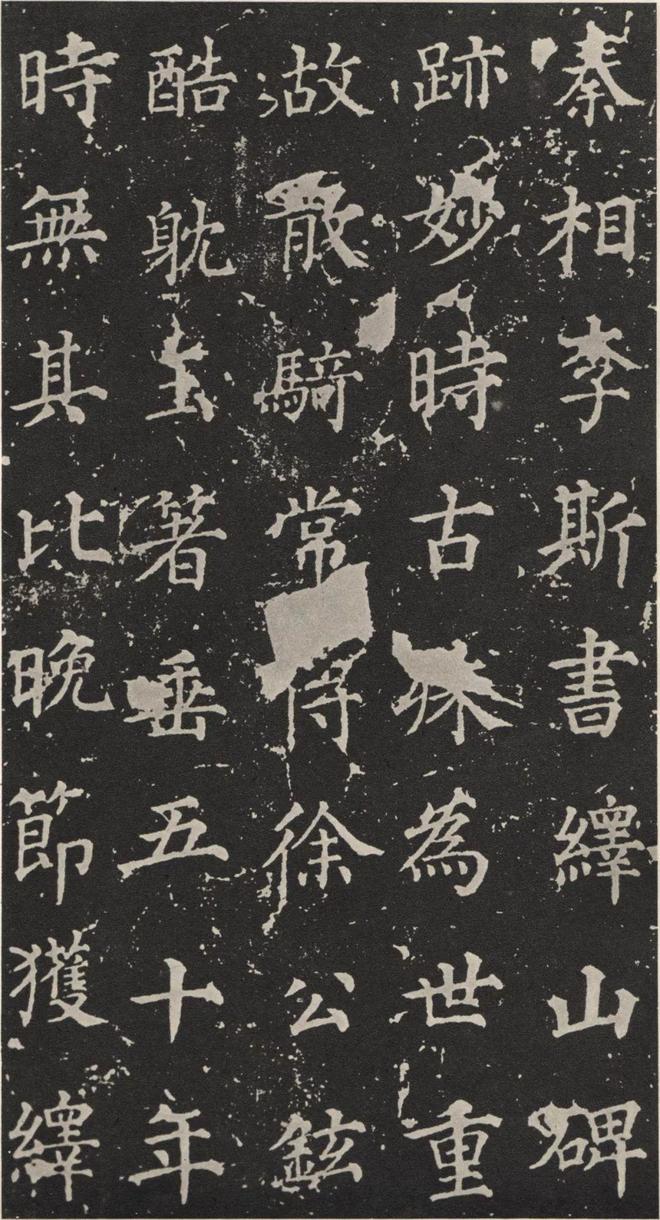 秦相李斯書繹山碑
跡妙時古殊為世重
故散騎常侍徐公鉉
酷躭玉箸垂五十年
時無其比晚節獲繹